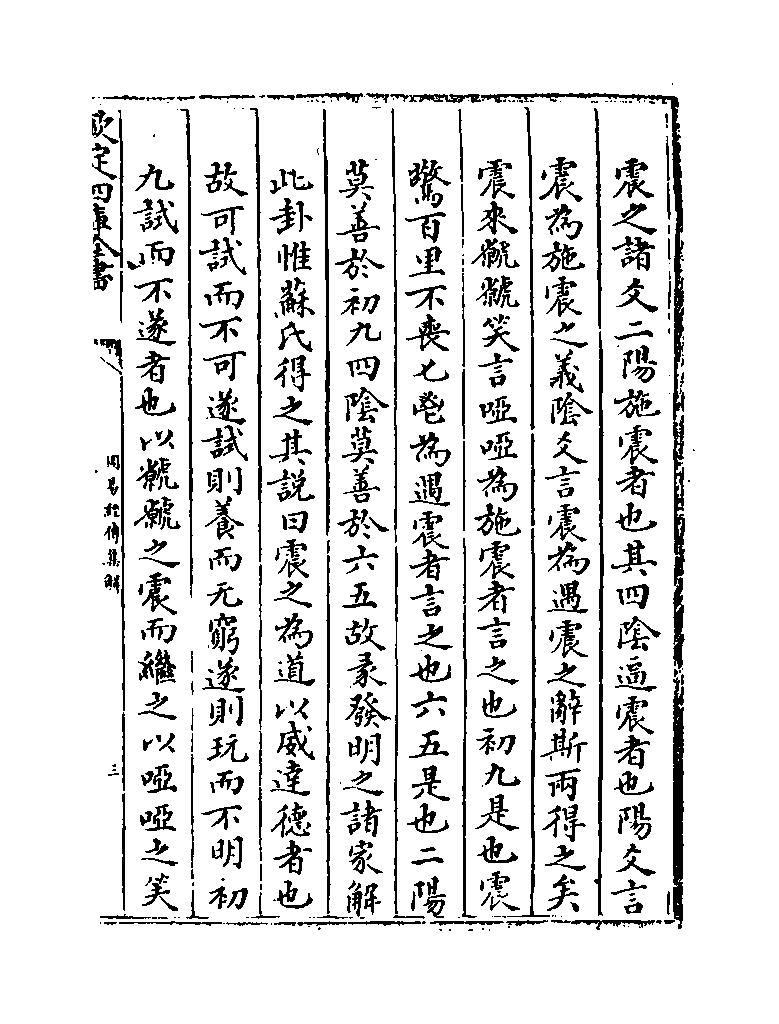 震之諸爻二陽施震者也其四陰遇震者也陽爻言
震為施震之義陰爻言震為遇震之辭斯兩得之矣
震來虩虩笑言啞啞為施震者言之也初九是也震
驚百里不喪匕鬯為遇震者言之也六五是也二陽
莫善於初九四陰莫善於六五故彖發明之諸家解
此卦惟蘇氏得之其說曰震之為道以威達德者也
故可試而不可遂試則養而无窮遂則玩而不明初
九試而不遂者也以虩虩之震而繼之以啞啞之笑
欽定四庫全書
周易經傳集解
三